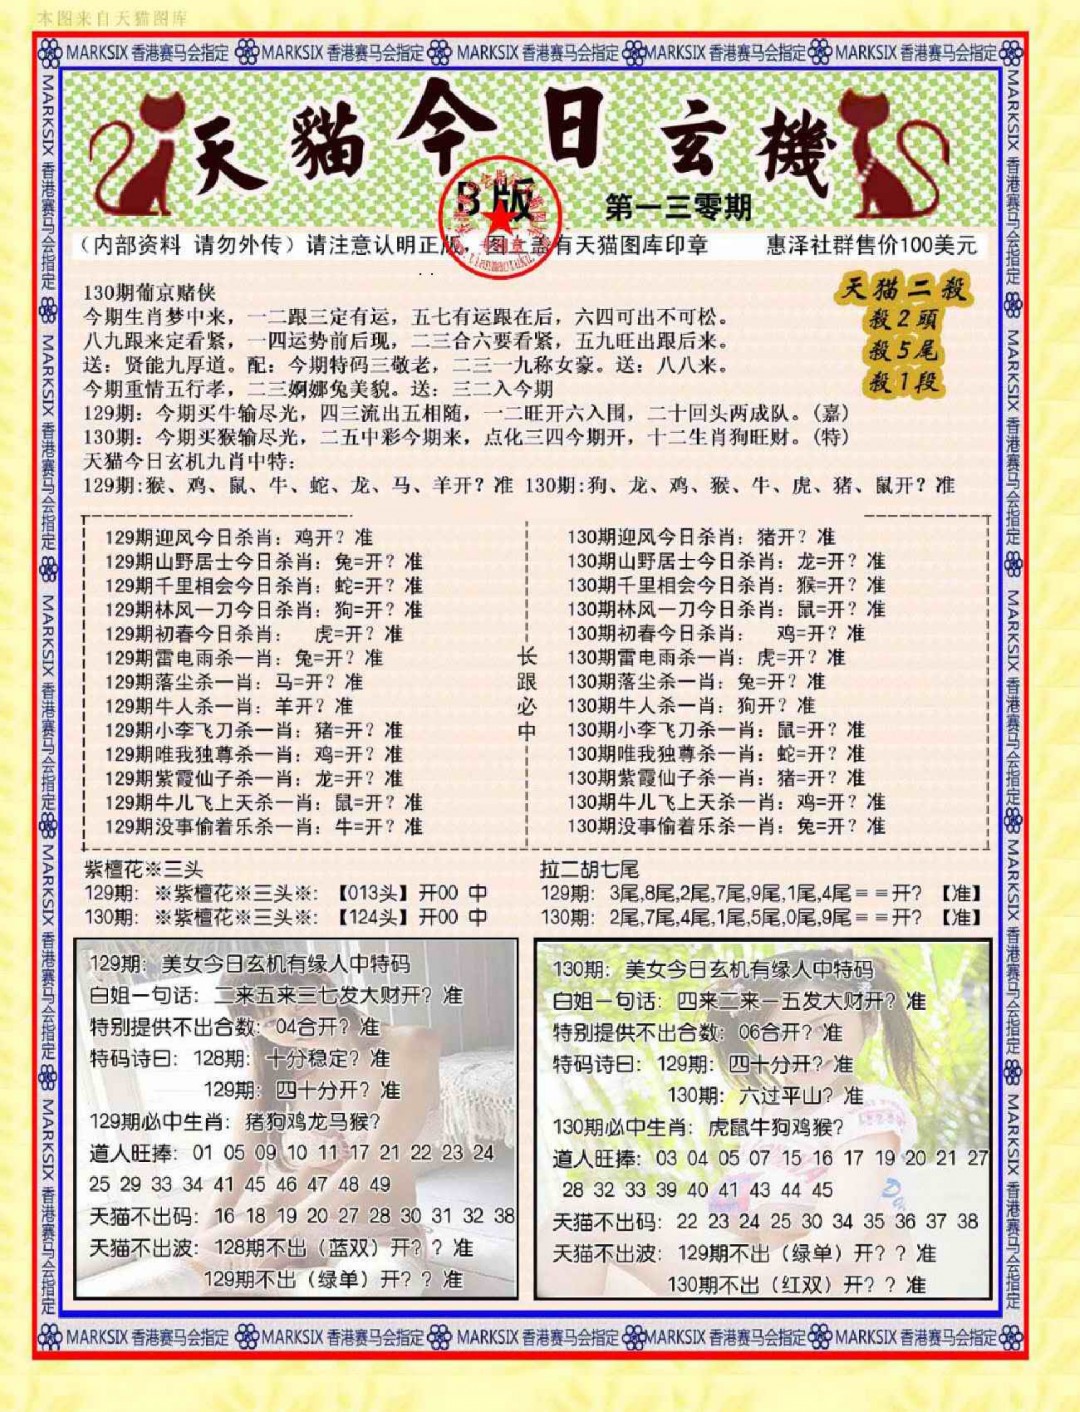 本图来自天猫图库
MARKSIX 香港赛马会指定 MARKSIX 香港赛马会指定 MARKSIX 香港赛马会指定 MARKSIX 香港赛马会指定 MARKSIX 香港赛马会指定
天貓今日玄機
B版
第一三零期
(内部资料 请勿外传)请注意认明正版,图上盖有天猫图库印章 惠泽社群售价100美元
天猫二殺
殺2頭
殺5尾
殺1段
130期葡京赌侠
今期生肖梦中来,一二跟三定有运,五七有运跟在后,六四可出不可松。
八九跟来定看紧,一四运势前后现,二三合六要看紧,五九旺出跟后来。
送:贤能九厚道。配:今期特码三敬老,二三一九称女豪。送:八八来。
今期重情五行孝,二三婀娜兔美貌。送:三二入今期
129期:今期买牛输尽光,四三流出五相随,一二旺开六入围,二十回头两成队。(嘉)
130期:今期买猴输尽光,二五中彩今期来,点化三四今期开,十二生肖狗旺财。(特)
天猫今日玄机九肖中特:
129期:猴、鸡、鼠、牛、蛇、龙、马、羊开?准 130期:狗、龙、鸡、猴、牛、虎、猪、鼠开?准
129期迎风今日杀肖:鸡开?准
129期山野居士今日杀肖:兔=开?准
129期千里相会今日杀肖:蛇=开?准
129期林风一刀今日杀肖:狗=开?准
129期初春今日杀肖: 虎=开?准
129期雷电雨杀一肖:兔=开?准
129期落尘杀一肖:马=开?准
129期牛人杀一肖:羊开?准
129期小李飞刀杀一肖:猪=开?准
129期唯我独尊杀一肖:鸡=开?准
129期紫霞仙子杀一肖:龙=开?准
129期牛儿飞上天杀一肖:鼠=开?准
129期没事偷着乐杀一肖:牛=开?准
长跟必中
130期迎风今日杀肖:猪开?准
130期山野居士今日杀肖:龙=开?准
130期千里相会今日杀肖:猴=开?准
130期林风一刀今日杀肖:鼠=开?准
130期初春今日杀肖: 鸡=开?准
130期雷电雨杀一肖:虎=开?准
130期落尘杀一肖:兔=开?准
130期牛人杀一肖:狗开?准
130期小李飞刀杀一肖:鼠=开?准
130期唯我独尊杀一肖:蛇=开?准
130期紫霞仙子杀一肖:猪=开?准
130期牛儿飞上天杀一肖:鸡=开?准
130期没事偷着乐杀一肖:兔=开?准
紫檀花※三头
129期: ※紫檀花※三头※:【013头】开00 中
130期: ※紫檀花※三头※:【124头】开00 中
拉二胡七尾
129期: 3尾,8尾,2尾,7尾,9尾,1尾,4尾==开?【准】
130期: 2尾,7尾,4尾,1尾,5尾,0尾,9尾==开?【准】
129期:美女今日玄机有缘人中特码
白姐一句话:二来五来三七发大财开?准
特别提供不出合数:04合开?准
特码诗曰:128期:十分稳定?准
129期:四十分开?准
129期必中生肖:猪狗鸡龙马猴?
道人旺捧:01 05 09 10 11 17 21 22 23 24
25 29 33 34 41 45 46 47 48 49
天猫不出码:16 18 19 20 27 28 30 31 32 38
天猫不出波:128期不出(蓝双)开??准
129期不出(绿单)开??准
130期:美女今日玄机有缘人中特码
白姐一句话:四来二来一五发大财开?准
特别提供不出合数:06合开?准
特码诗曰:129期:四十分开?准
130期:六过平山?准
130期必中生肖:虎鼠牛狗鸡猴?
道人旺捧:03 04 05 07 15 16 17 19 20 21 27
28 32 33 39 40 41 43 44 45
天猫不出码:22 23 24 25 30 34 35 36 37 38
天猫不出波:129期不出(绿单)开??准
130期不出(红双)开??准
MARKSIX 香港赛马会指定 MARKSIX 香港赛马会指定 MARKSIX 香港赛马会指定 MARKSIX 香港赛马会指定 MARKSIX 香港赛马会指定